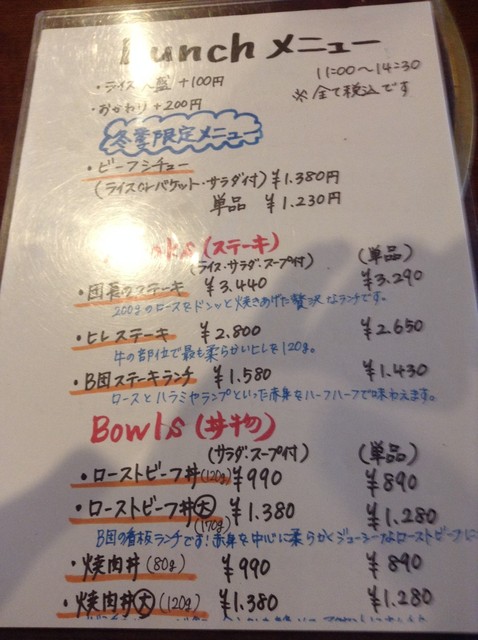 Lunch メニュー
・ライス大盛 +100円
11:00〜14:30
・おかわり +200円
※全て税込です
冬季限定メニュー
・ビーフシチュー
(ライスorバケット・サラダ付) ¥1.380円
単品 ¥1.230円
(ステーキ)
(ライス・サラダ・スープ付) (単品)
・団長のステーキ ¥3.440 ¥3.290
200gのロースをドンッと焼きあげた贅沢なランチです。
・ヒレステーキ ¥2.800 ¥2.650
牛の部位で最も柔らかいヒレを120g。
・B団ステーキランチ ¥1.580 ¥1.430
ロースとハラミやランプといった赤身をハーフハーフで味わえます。
Bowls (丼物)
(サラダ・スープ付) (単品)
・ローストビーフ丼(120g) ¥990 ¥890
・ローストビーフ丼大(170g) ¥1.380 ¥1.280
B団の看板ランチです!赤身を中心に柔らかくジューシーなローストビーフに
・焼肉丼(80g) ¥990 ¥890
・焼肉丼大(120g) ¥1.380 ¥1.280